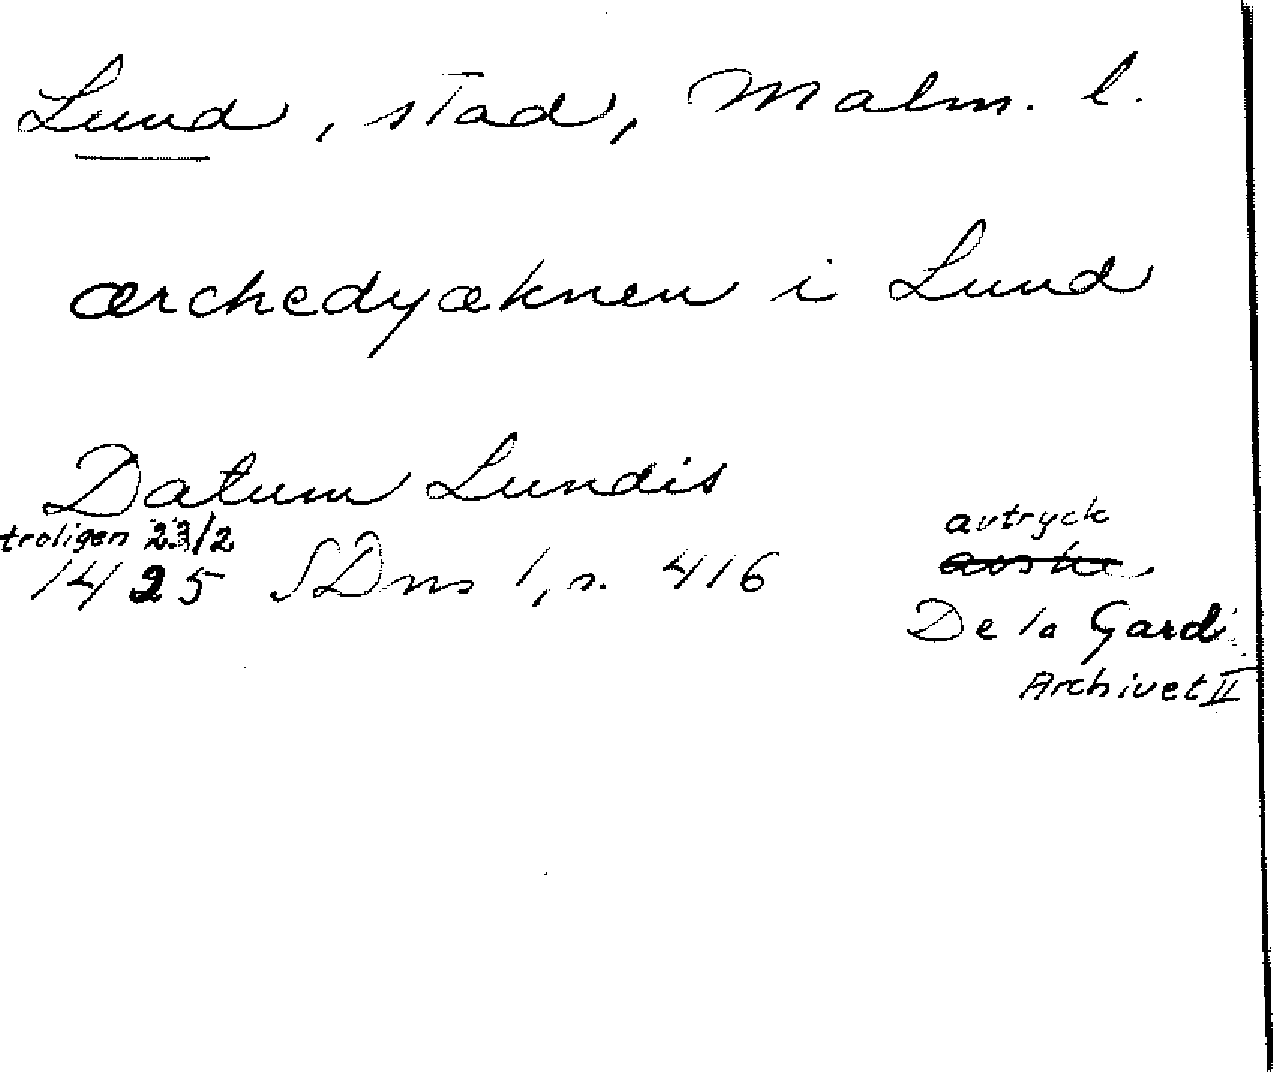 Lund, stad, Malm. l.
ærchedyæknen i Lund
Datum Lundis
troligen 23/2
1425 SDns 1, s. 416
avtryck
De la Gard.
Archivet II